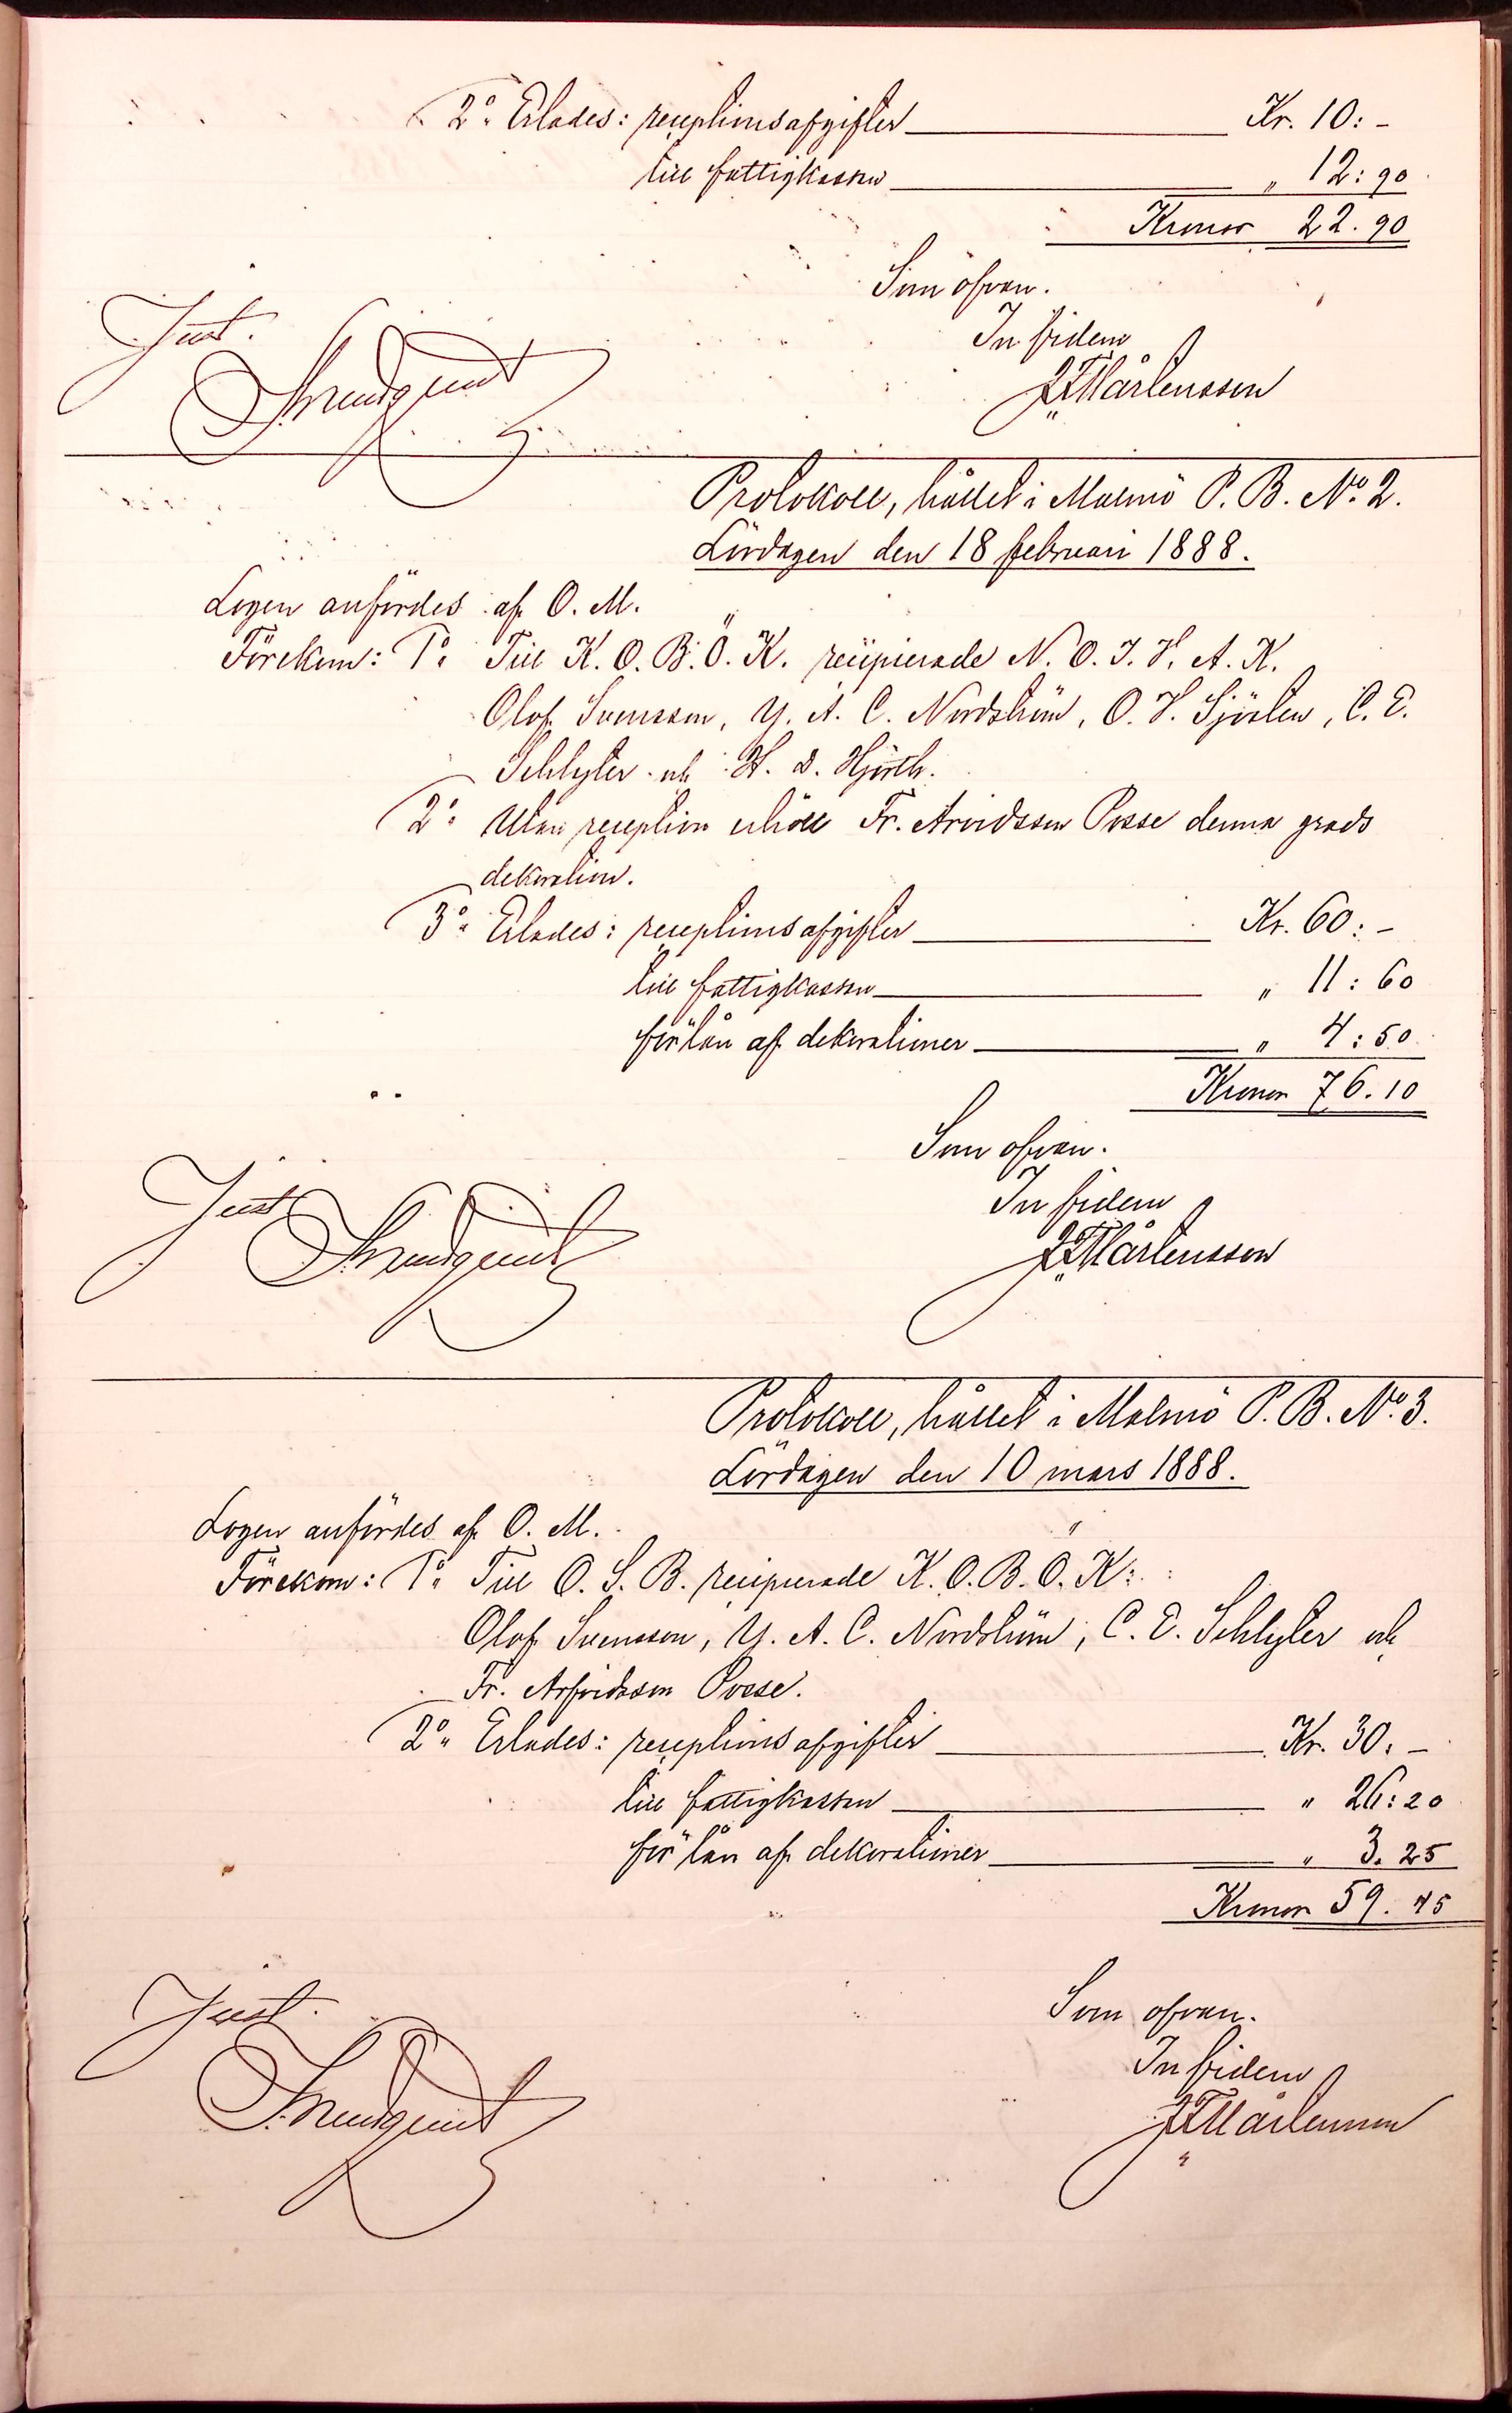 2º Erlades: receptionsafgifter Kr. 10: -
till fattigkassan „ 12: 90
Kronor 22. 90
Som ofvan.
In fidem
Just.
Mårtensson
Protokoll, hållet i Malmö P. B. Nº 2.
Lördagen den 18 februari 1888.
Logen anfördes af O. M.
Förekom: 1º Till K. O. B. Ö. K. recipierade N. O. I. V. A. K.
Olof Svensson, Y. A. C. Nordström, O. V. Sjösten, C. E.
Schlyter och H. D. Hjorth.
2º Utan reception erhöll Fr. Arvidsson Posse denna grads
dekoration.
3º Erlades: receptionsafgifter Kr. 60: -
till fattigkassan „ 11: 60
för lån af dekorationer „ 4: 50
Kronor 76. 10
Som ofvan.
Just.
In fidem
Mårtensson
Protokoll, hållet i Malmö P. B. Nº 3.
Lördagen den 10 mars 1888.
Logen anfördes af O. M.
Förekom: 1º Till O. S. B. recipierade K. O. B. Ö. K:
Olof Svensson, Y. A. C. Nordström, C. E. Schlyter och
Fr. Arfvidsson Posse.
2º Erlades: receptionsafgifter Kr. 30. -
till fattigkassan „ 26: 20
för lån af dekorationer „ 3. 25
Kronor 59. 45
Som ofvan.
Just.
In fidem
Mårtensson